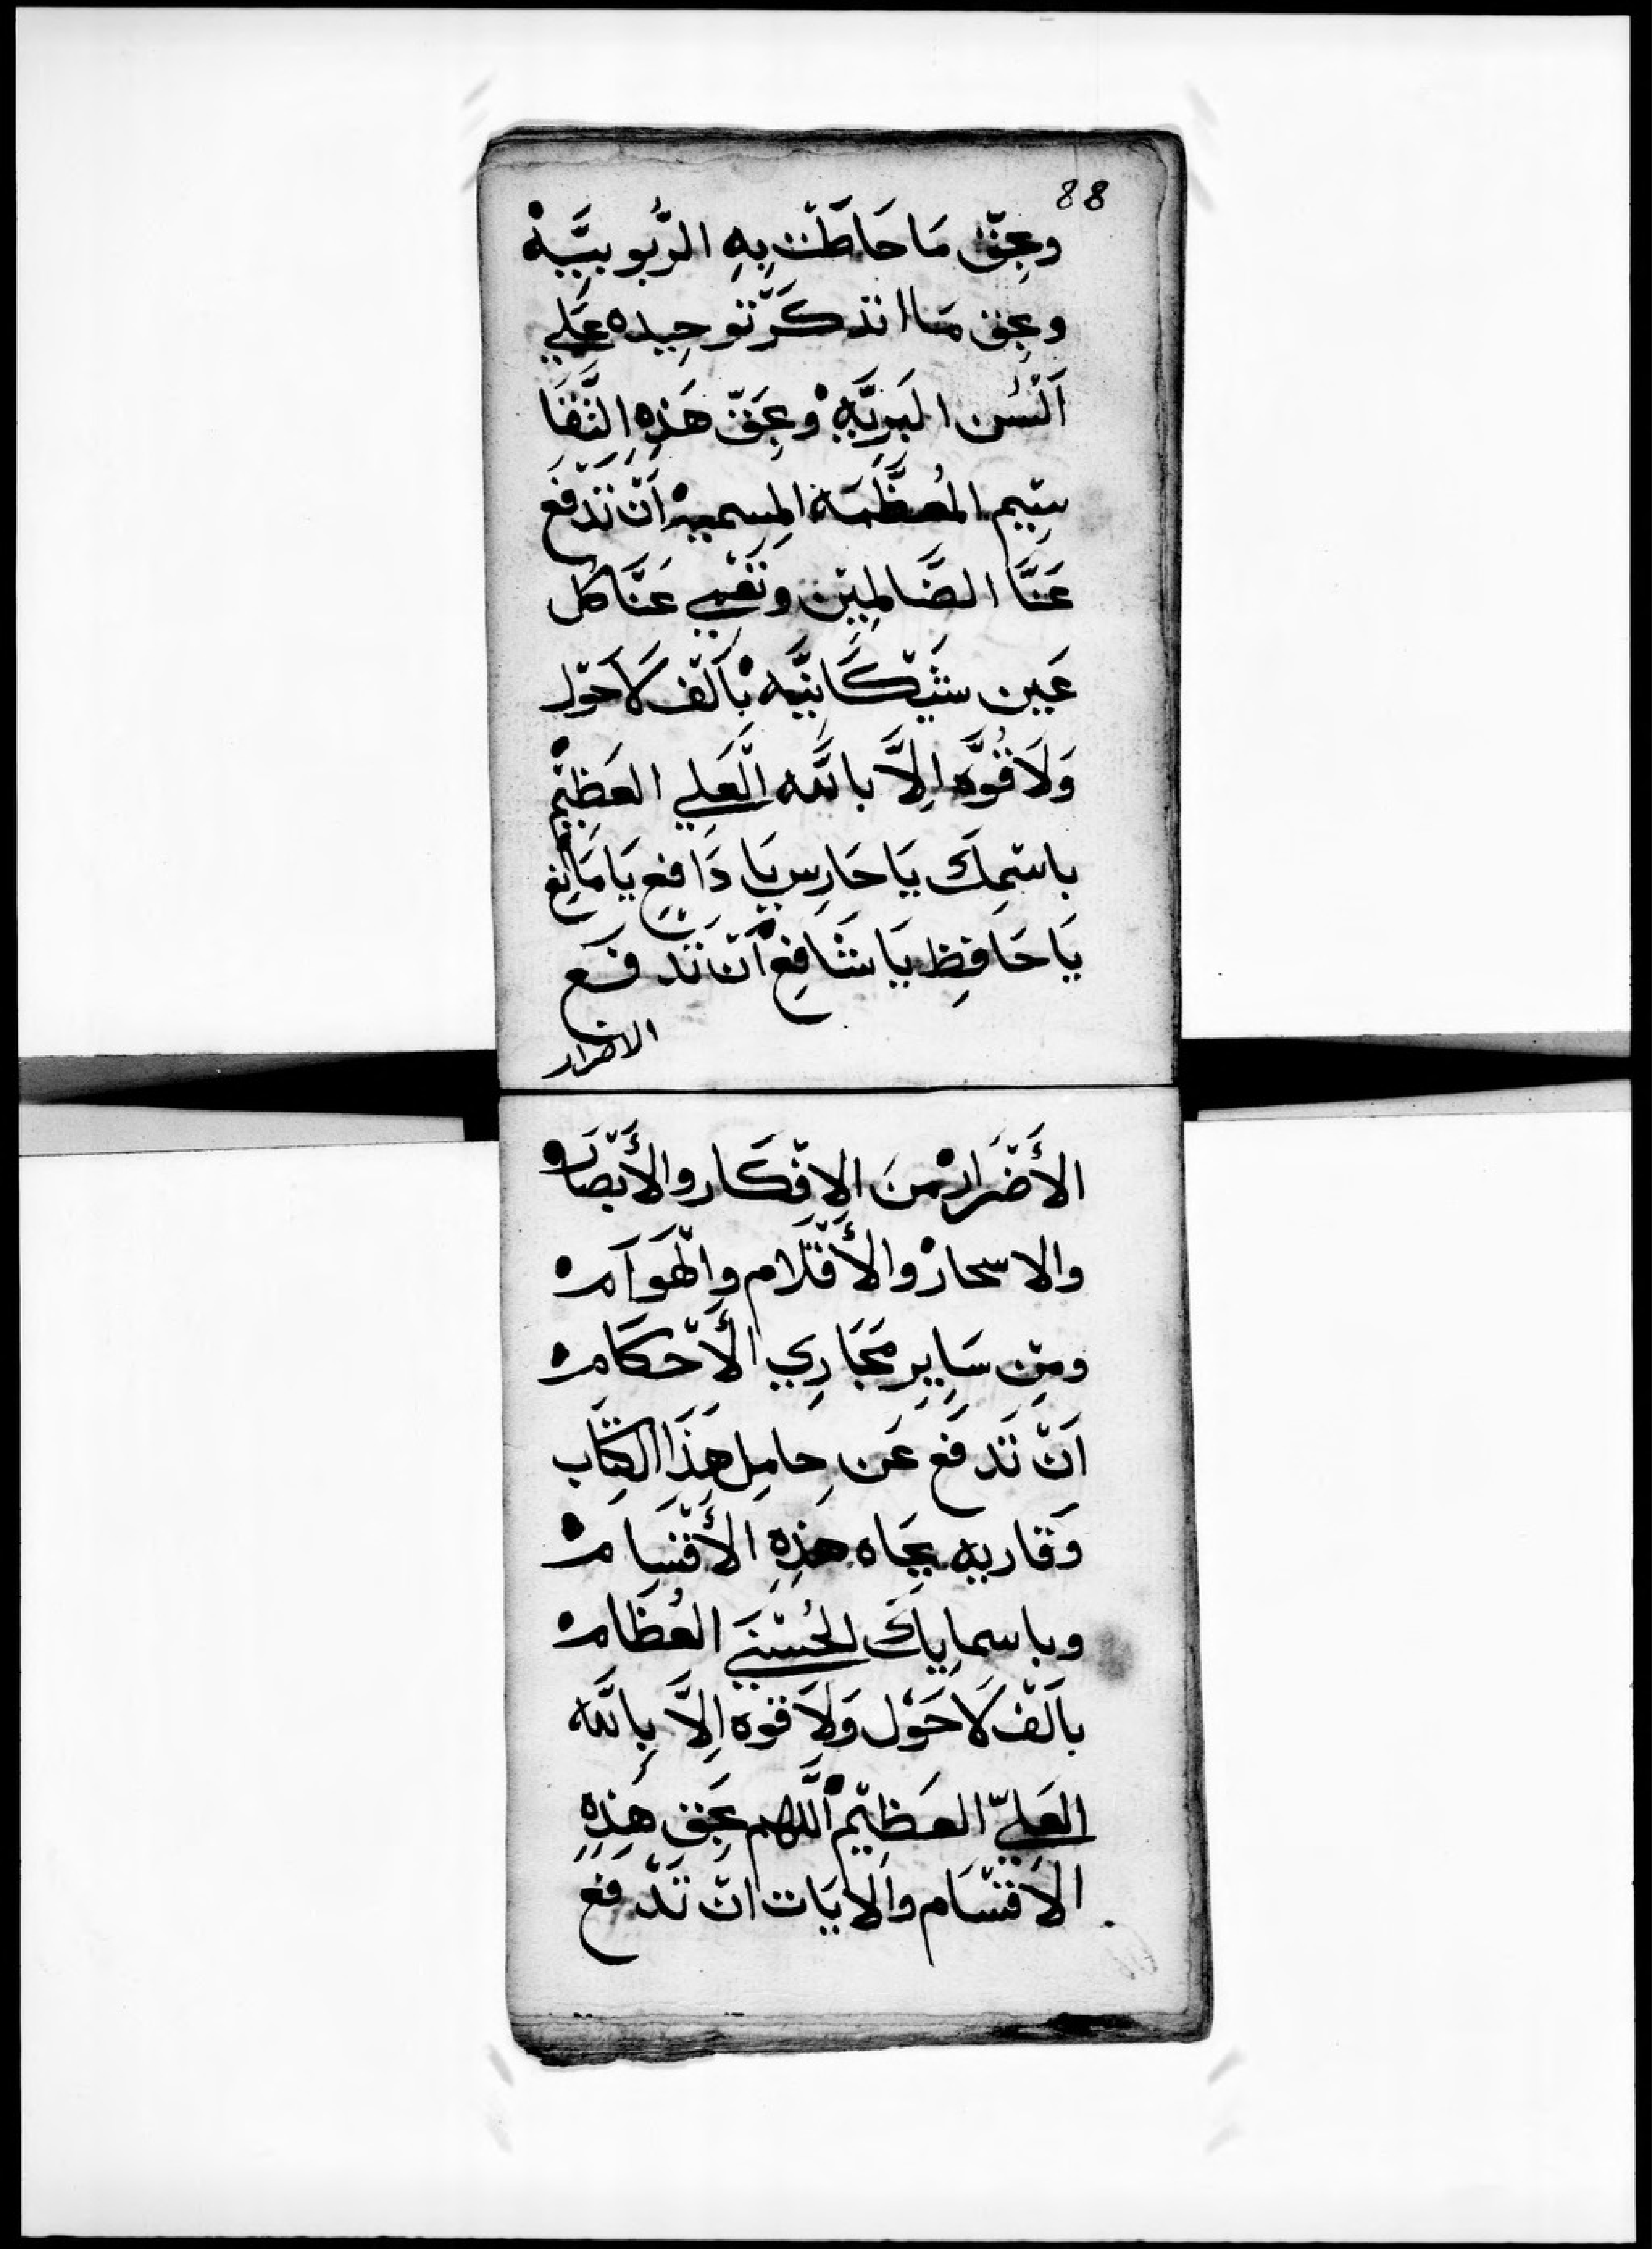 88
وبحَقّ مَا حَاطَتْ بِهِ الرُّبوبيَّهْ
وبحِق مَا انذكَرّ توحِيده عَلي
اَلْسُن البَرِيَّهْ وبِحَقّ هَذِهِ التَّقَا
سِيم المُعظَّمَة المسميهْ اَنْ تَدفَع
عَنَّا الضَّالمِيْن وتَقي عَنَّا كل
عَين شَيْكَانيَّه بْاَلْف لاَحَوْل
وَلاَ قُوَّه اِلاَّ بالله الْعَلي العَظِيْم
باسْمِكَ يَا حَارِس يَا دَافِع يَا مَانِع
يَا حَافِظ يَا شَافِع اَنْ تَدفَع
الاضرار
الأَضْرَارْ مِنَ الافْكَار والأَبْصَارْ
والاسحارْ والأَقْلاَم والْهَوَآمْ
ومِنْ سَايِر مَجَارِي الأَحْكَامْ
اَنْ تَدفَع عَن حِامِل هَذَا الكِتَاب
وَقاريه بِجَاه هَذِهِ الأَقْسِامْ
وباسمايِكَ الحُسْنَي العُظَامْ
باَلْف لاَحَوْل وَلاَ قوه اِلاَّ بِالله
العَلِيّ العَظِيْم اَللهم بحَق هَذِهِ
الاَقْسَام والايَات انْ تَدْفَع